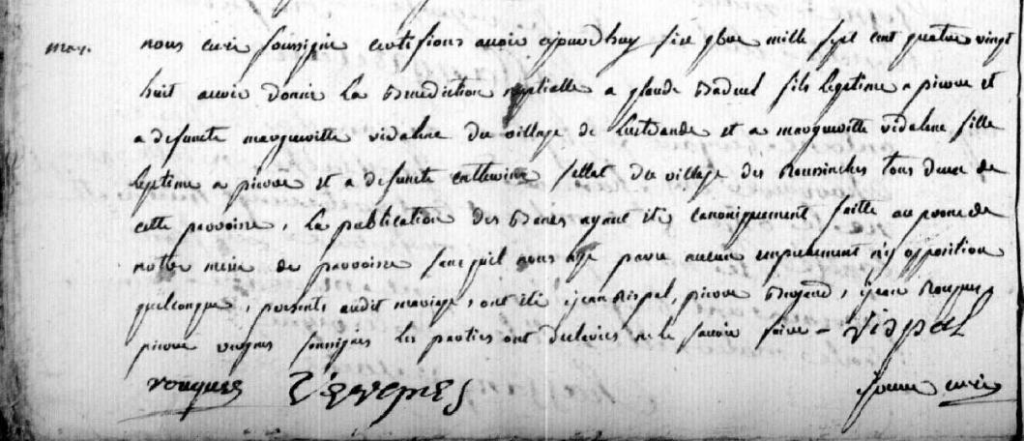 mar.
nous curé soussigné certifions avoir ajourdhuy six 9bre mille sept cent quatre vingt
huit avoir donné la benediction nuptialle a glaude Baduel fils legitime a pierre et
a defuncte margueritte vidaline du village de et a margueritte vidaline fille
legitime a pierre et a defuncte catterine fellat du village des tous deux de
cette parroisse, la publication des bancs ayant été canoniquement faitte au prone de
notre messe de parroisse sans quil nous aye paru aucun empechement n'y opposition
quelconque, presents audit mariage, ont été jean rispal, pierre jean rouques
pierre vergnes soussignés les parties ont declarées ne le savoir faire - rispal
rouques vergnes curé